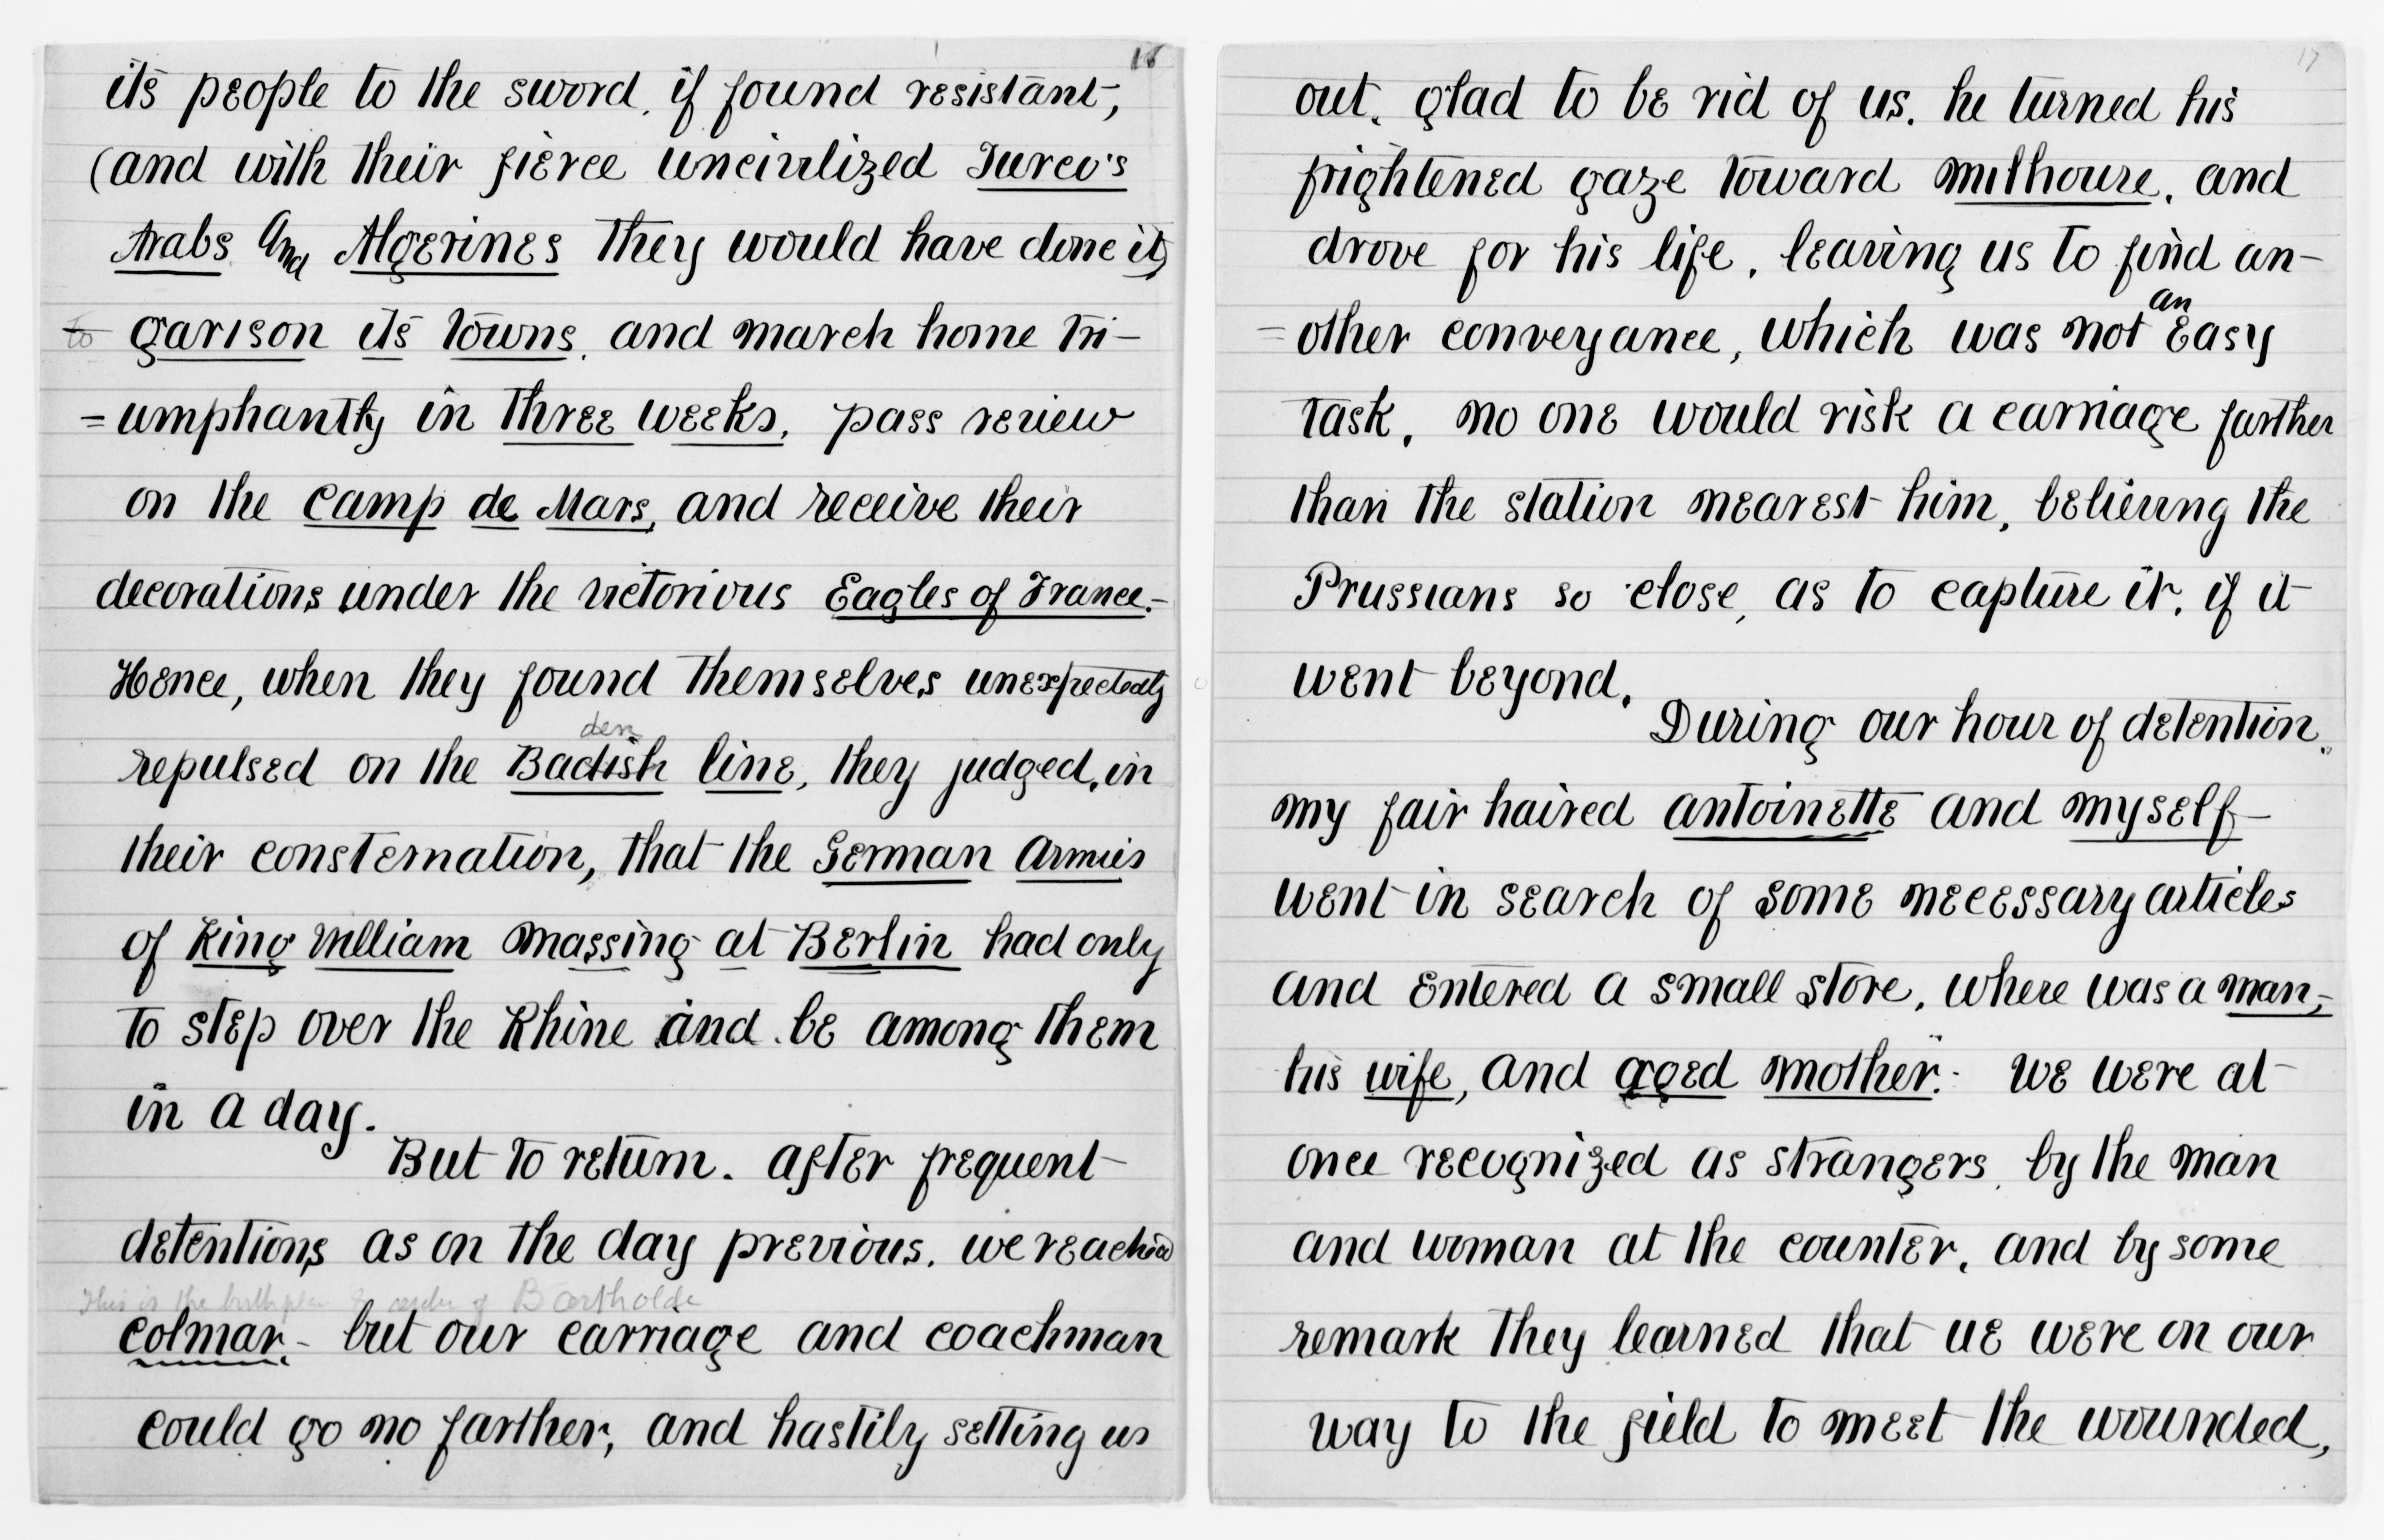 16
its people to the sword, if found resistant,
(and with their fierce uncivilized Turco's
Arabs and Algerines they would have done it)
to garison its towns, and march home tri-
=umphantly in three weeks, pass review
on the Camp de Mars, and receive their
decorations under the victorious Eagles of France.-
Hence, when they found themselves unexpectedly
den
repulsed on the Badish line, they judged, in
their consternation, that the German Armies
of King William massing at Berlin had only
to step over the Rhine and be among them
in a day.
But to return. After frequent
detentions as on the day previous, we reached
This is the birthplace & of Bartholde
Colmar.- but our carriage and coachman
could go no farther, and hastily setting us
17
out, glad to be rid of us, he turned his
frightened gaze toward Milhouse, and
drove for his life, leaving us to find an-
an
=other conveyance, which was not easy
task, no one would risk a carriage farther
than the station nearest him, believing the
Prussians so close, as to capture it, if it
went beyond.
During our hour of detention,
my fair haired Antoinette and myself
went in search of some necessary articles
and entered a small store, where was a man,-
his wife, and aged mother.- We were at
once recognized as strangers, by the man
and woman at the counter, and by some
remark they learned that we were on our
way to the field to meet the wounded,